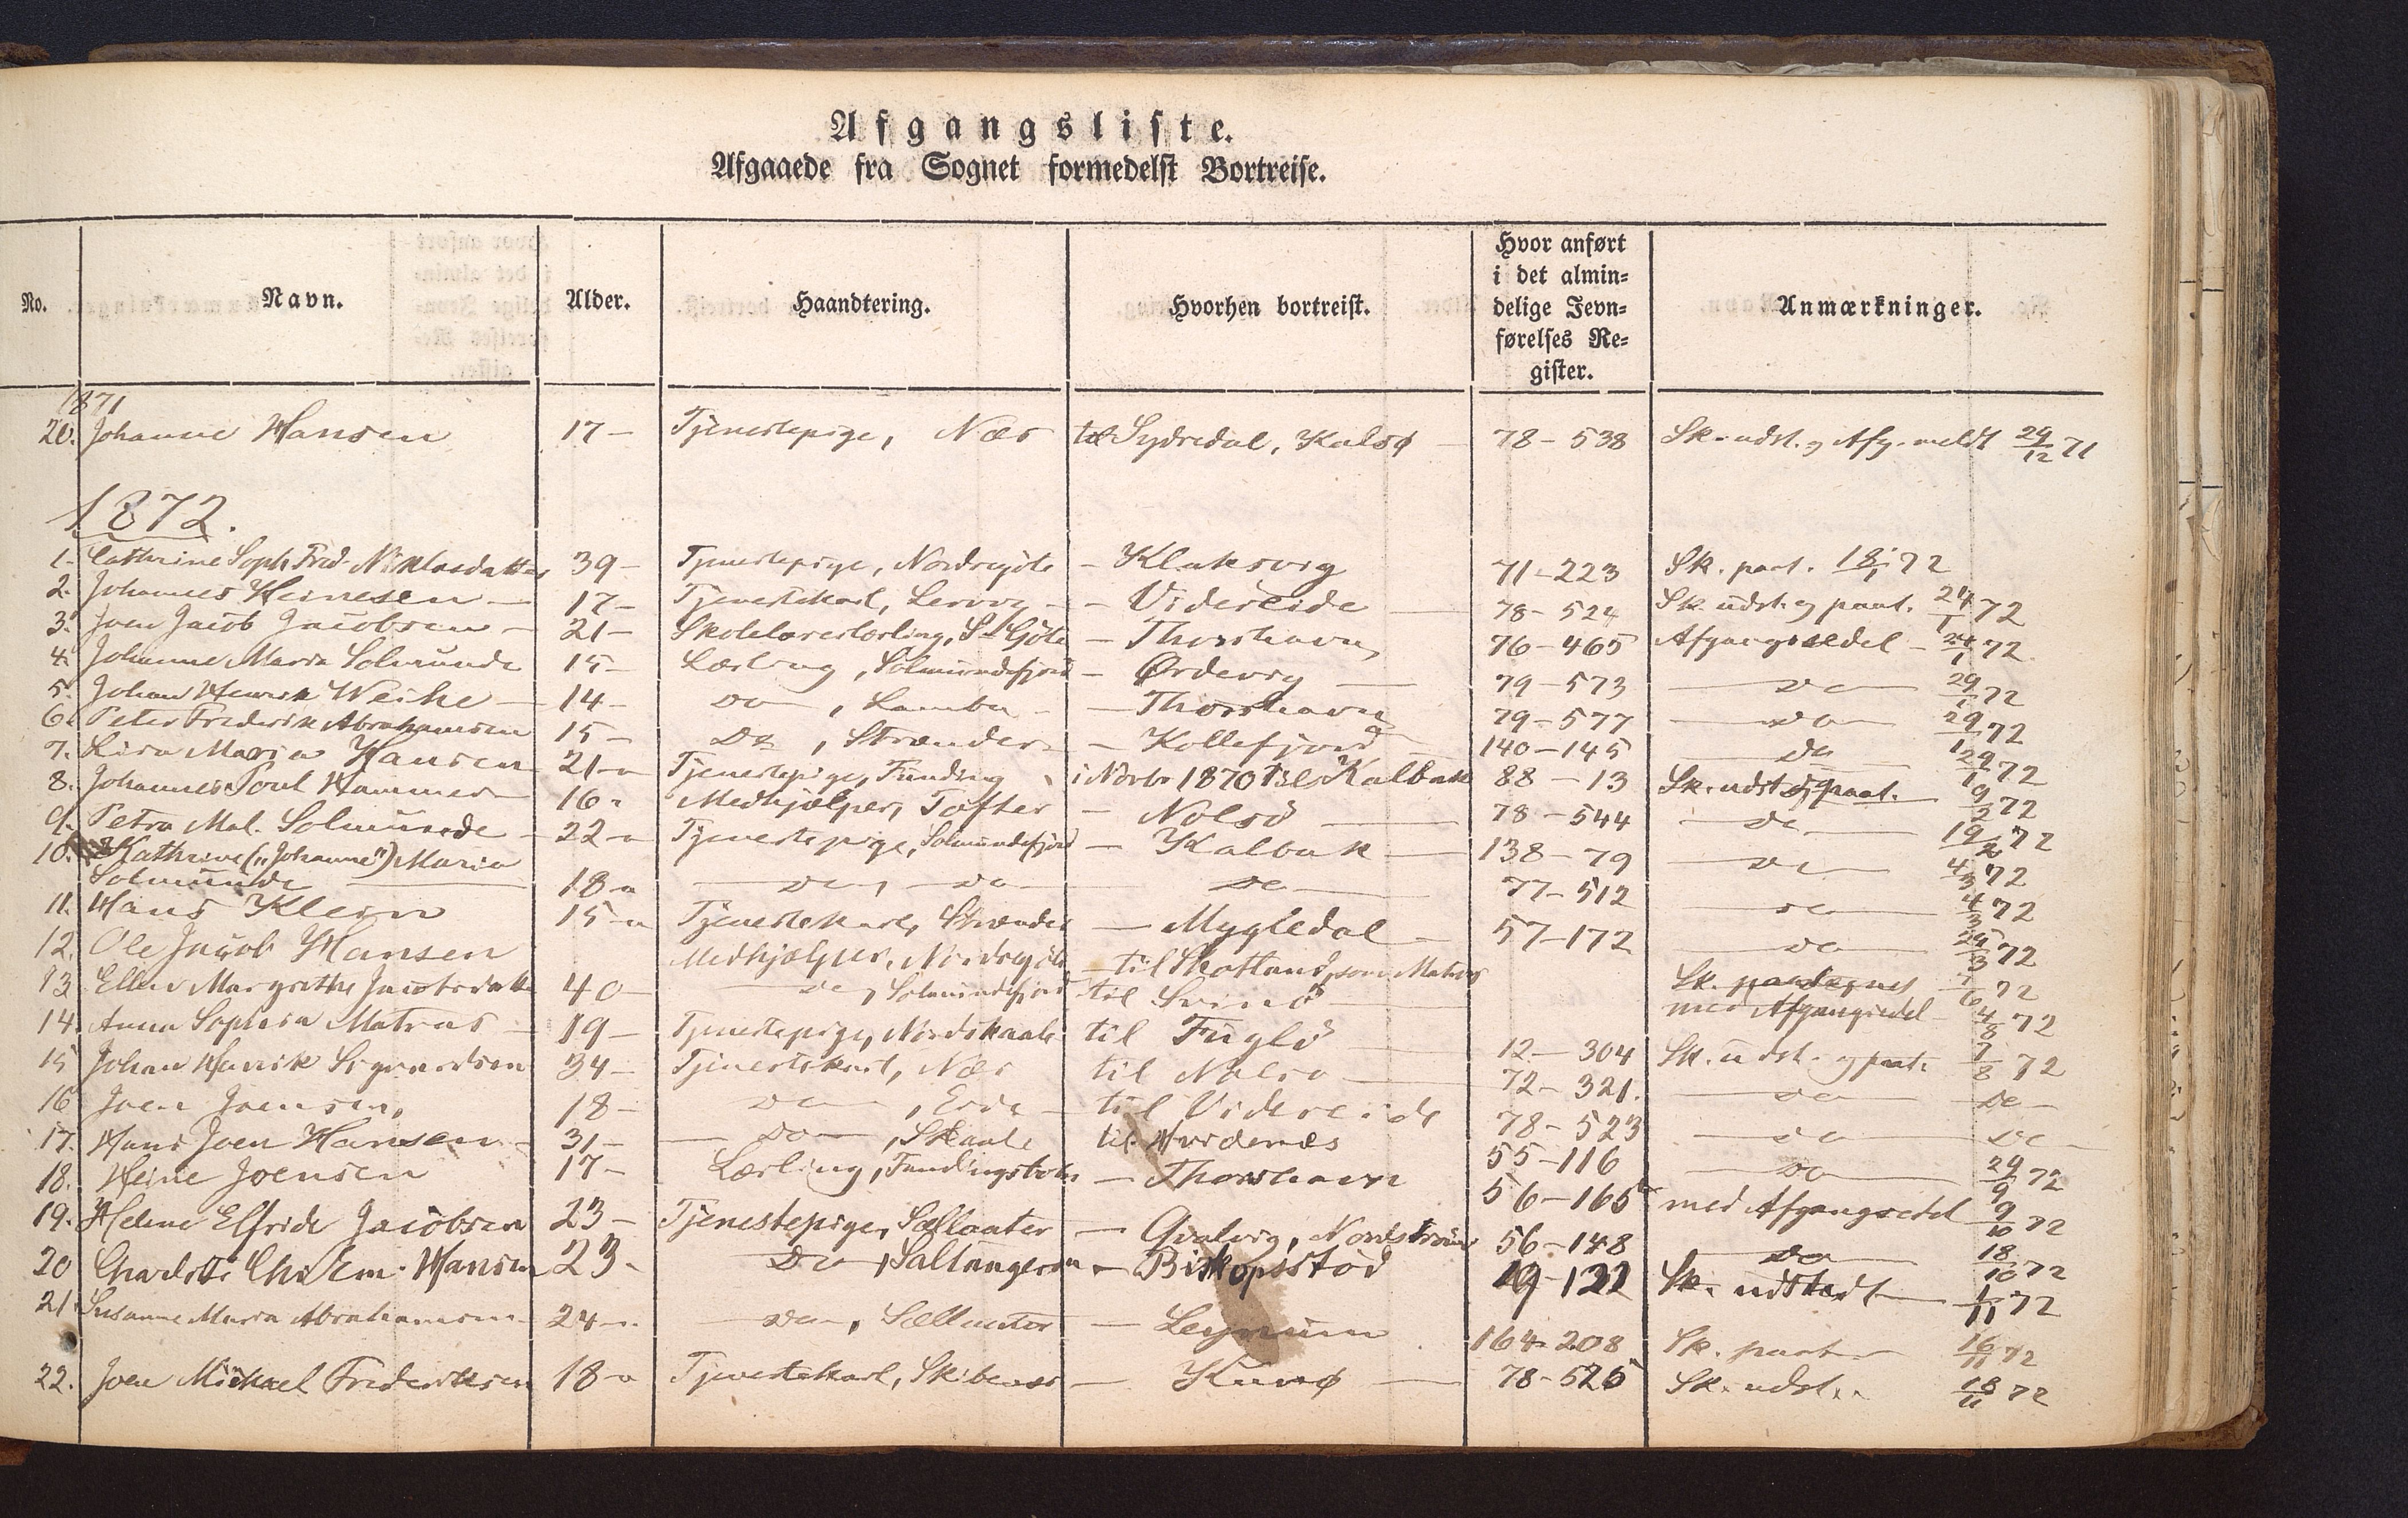 Afgangsliste.
Afgaaede fra Sognet formedelst Bortreise.
No. Navn. Alder. Haandtering. Hvorhen bortreist. Hvor anført i det almin= delige Jevn= førelses Re= gister. Anmærkninger.
1871
20. Johanne Hansen 17 – Tjenestepige, Næs til Sydredal, Kalsø – 78 – 538 Sk. udst. og Afg. meldt 29/12 71
1872.
1. Cathrine Soph. Fred. Niklasdatter 39 – Tjenestepige, Nordregöte – Klaksvig 71 – 223 Sk. paat. 18/1 72
2. Johannes Heinesen – 17 – Tjenestekarl, – Videreide – 78 – 524 Sk. udst. og paat. 24/1 72
3. Joen Jacob Jacobsen – 21 – Skolelærerlærling, Sdr Göte – Thorshavn 76 – 465 Afgangsseddel – 24/1 72
4. Johanne Maria Solmunde 15 – Lærling, Solmundefjord – Ördevig – 79 – 573 – do – 29/1 72
5. Johan Henrik Weihe – 14 – Do, Lamba – Thorshavn 79 – 577 – do – 29/1 72
6. Peter Frederik Abrahamsen 15 – Do, Strænder – Kollefjord – 140 – 145 do 29/1 72
7. Lisa Maria Hansen 21 – Tjenestepige, Funding i Novbr 1870 til Kalbak 88 – 13 Sk. udst. og paat. 9/2 72
8. Johannes Poul Hammer 16 – Medhjælper, Tofter – Nolsö – 78 – 544 – do – 19/2 72
9. Petra Mal. Solmunde – 22 – Tjenestepige, Solmundefjord – Kalbak – 138 – 79 – do – 4/3 72
10. Kathrine („Johanne") Maria
Solmunde – 18 – do, – do – – do – 77 – 512 – do – 4/3 72
11. Hans Klein 15 – Tjenestekarl, Strænder – Mygledal – 57 – 172 – do – 25/3 72
12. Ole Jacob Hansen Medhjælper, Nordregöte – til Skotland, som Matros Sk. 72
13 Ellen Margrethe Jacobsdatter 40 – do, Solmundefjord til Svinö – med Afgangsedel – 4/8 72
14. Anna Sophia Matras – 19 – Tjenestepige, Nordskaale til Fuglö 12 – 304 Sk. udst. og paat. 7/8 72
15 Johan Henrik Sigvardsen 34 – Tjenestekarl, Næs til Nolsö – 72 – 321. – do – do –
16 Joen Joensen, 18 – do –, Eide – til Videreide 78 – 523 – do – do –
17. Hans Joen Hansen – 31 – – do –, Skaale til Hvidenæs 55 – 116 – do – 29/9 72
18. Heine Joensen 17 – Lærling, Fundingsbotn – Thorshavn 56 – 165 med Afgangsedel 9/10 72
19. Helene Elfride Jacobsen 23 – Tjenestepige, Sællaater – Qvalvig, Nordströmö 56 – 148 – do – 18/10 72
20 Charlotte Chr. Em. Hansen 23 – Do, Saltangeraa – Biskopsstöd 19 – 122 Sk. udstedt – 1/11 72
21. Susanne Maria Abrahamsen – 24 – do –, Sællaater – Leynum 164 – 208 Sk. paat. – 16/11 72
22. Joen Michael Frederiksen 18 – Tjenestekarl, Skibenæs – Kunø – 78 – 526 Sk. udst. 18/11 72